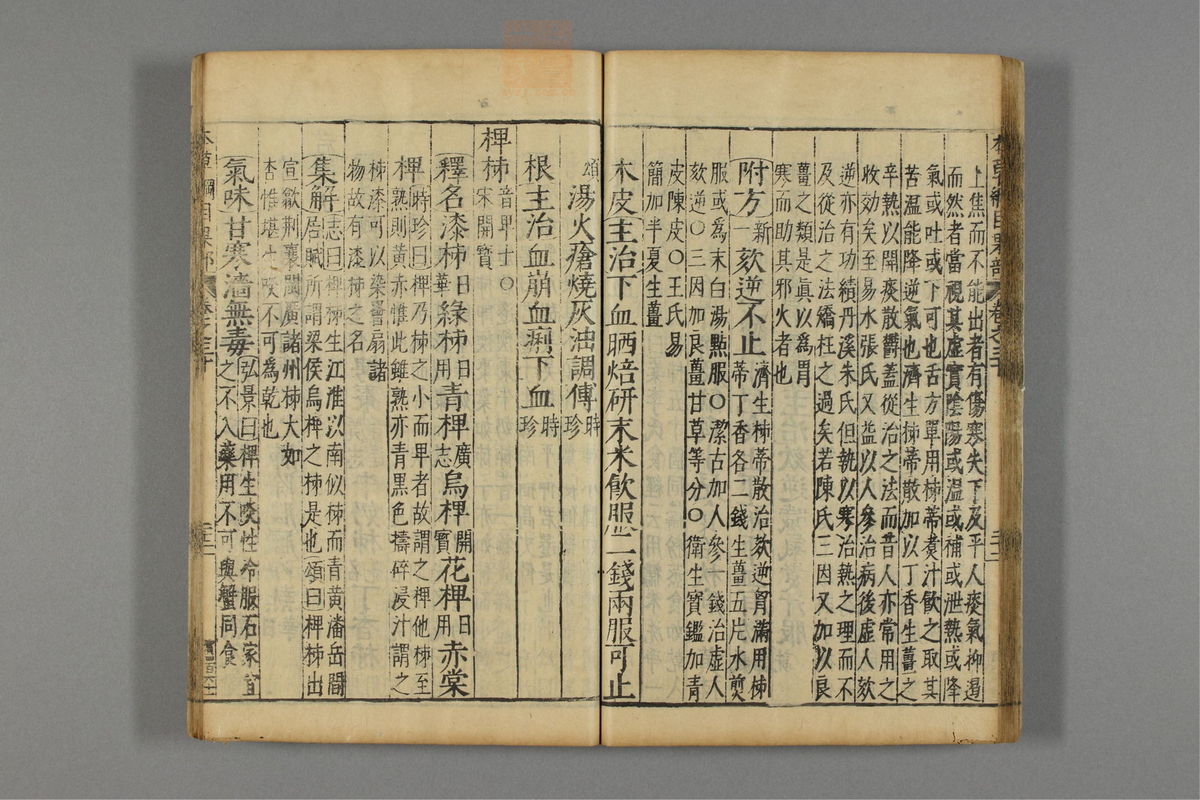 上焦而不能出者有傷寒失下及平人痰氣抑遏
而然者當視其虛實陰陽或溫或補或泄熱或降
氣或吐或下可也古方單用柹蒂煑汁飲之取其
苦溫能降逆氣也濟生柹蒂散加以丁香生薑之
辛熱以開痰散鬱蓋從治之法而昔人亦常用之
收効矣至易水張氏又益以人參治病後虛人欬
逆亦有功績丹溪朱氏但執以寒治熱之理而不
及從治之法矯枉之過矣若陳氏三因又加以良
薑之類是眞以爲胃
寒而助其邪火者也
附方新一欬逆不止濟生柹蒂散治欬逆胃滿用柹
蒂丁香各二錢生薑五片水煎
服或爲末白湯點服○潔古加人參一錢治虛人
欬逆○三因加良薑甘草等分○衛生寶鑑加青
皮陳皮○王氏易
簡加半夏生薑
木皮主治下血晒焙研末米飲服二錢兩服可止
頌湯火瘡燒灰油調傅時珍
根主治血崩血痢下血時珍
椑柹音卑士○宋開寶
釋名漆柹日華綠柹日用青椑廣志烏椑開寶花椑日用赤棠
椑時珍曰椑乃柹之小而卑者故謂之椑他柹至
熟則黄赤惟此雖熟亦青黑色擣碎浸汁謂之
柹漆可以染罾扇諸
物故有漆柹之名
集解志曰椑柹生江淮以南似柹而青黄潘岳閒
居賦所謂梁侯烏椑之柹是也頌曰椑柹出
宣歙荆襄閩廣諸州柹大如
杏惟堪生啖不可爲乾也
氣味甘寒濇無毒弘景曰椑生啖性冷服石家宜
之不入藥用不可與蟹同食